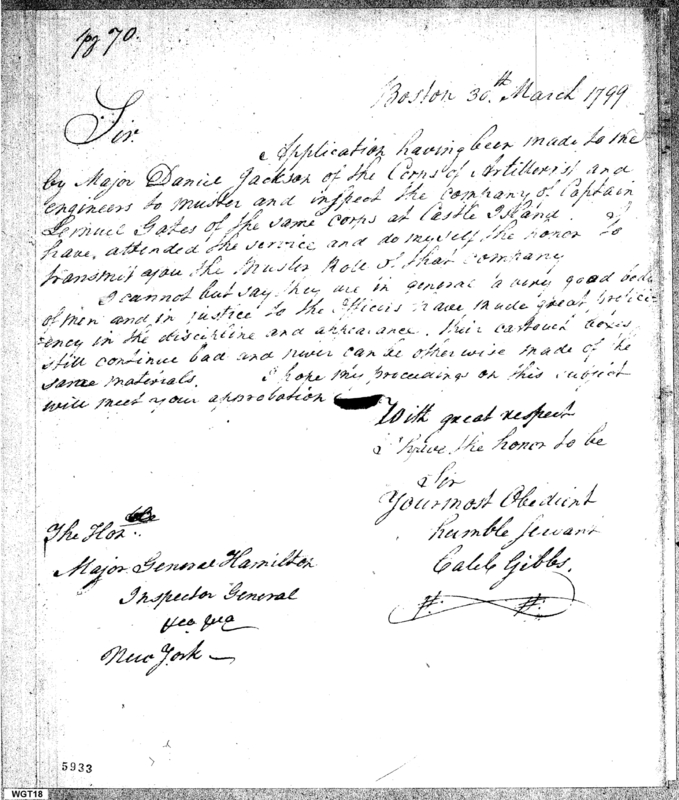 pg 70.
Boston 30th March 1799
Sir.
Application having been made to me
by Major Daniel Jackson of the Corps of Artillerist and
engineers to muster and inspect the Company of Captain
Lemuel Gates of the same corps at Castle Island. I
have attended the service and do myself the honor to
transmit you the Muster Role of that company
I cannot but say they are in general a very good body
of men and in justice to the Officers have made great profici
ency in the discipline and appearance. their cartouch boxes
still continue bad and never can be otherwise made of the
same materials. I hope my proceedings on this subject
will meet your approbation
With great respect
I have the honor to be
Sir
Your most Obedient
humble servant
Caleb Gibbs.
The Hon.
Major General Hamilton
Inspector General
New York
5933
WGT18